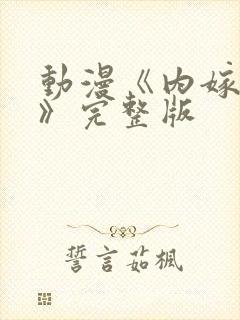 動漫《内嫁
》完整版
誓言茹楓